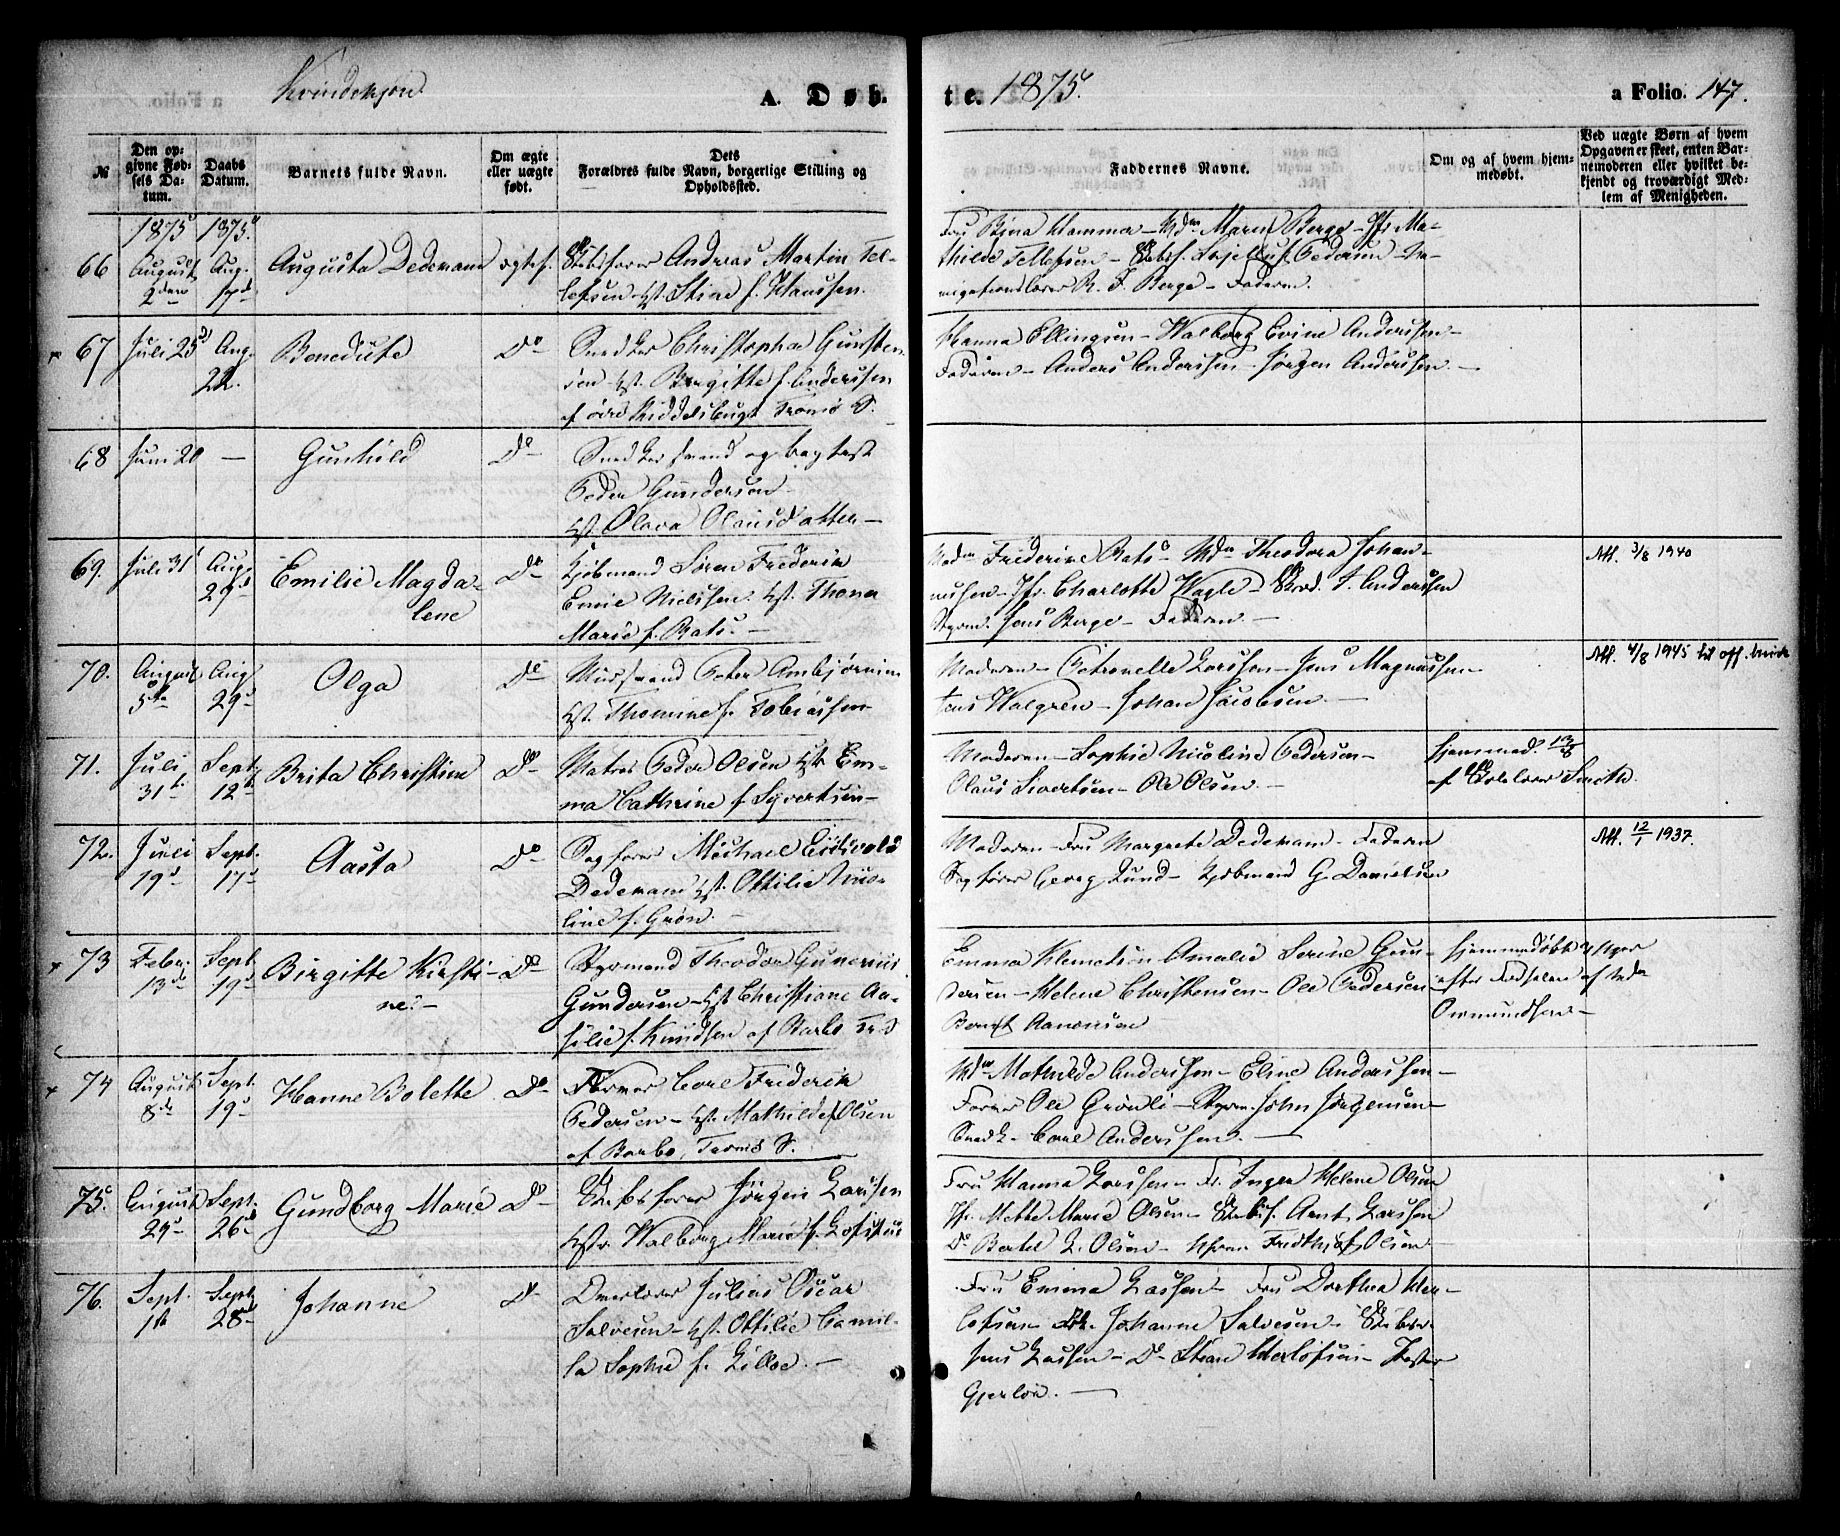 Kvindekjøn
A. Døb-
te. 1875.
a Folio. 147.
№
Den op-
givne Fød-
sels Da-
tum.
Daabs
Datum.
Barnets fulde Navn.
Om ægte
eller uægte
født.
Dets
Forældres fulde Navn, borgerlige Stilling og
Opholdssted.
Faddernes Navne.
Om og af hvem hjem-
medøbt.
Ved uægte Børn af hvem
Opgaven er skeet, enten Bar-
nemoderen eller hvilket be-
kjendt og troværdigt Med-
lem af Menigheden.
1875 1875.
66 August 2den Aug. 17d Augusta Dedekam ægtef.
Skibsfører Andreas Martin Tel-
lefsen Hst. Stine f. Hanssen.
Fru Bina Hammer - Mdm Maren Berge - Jfr. Ma-
thilde Tellefsen - Skibsf. f. Pedersen - Na-
vigationslærer R. F. Berge - Faderen.
67 Juli 25d Aug. 22. Benedicte Do
Snedker Christopher Gunsten-
sen Hst. Birgitte f. Anderssen
Tromø S.
Hanna Ellingsen - Walborg Evine Anderssen -
Faderen - Anders Anderssen - Jørgen Anderssen. -
68 Juni 20 - Gunhild Do
Snedkersvend og
Peder Gundersen
Hst. Olava Olausdatter -
69. Juli 31 Aug. 29d Emilie Magda-
lene Do
Kjøbmand Søren Frederik
Emil Nielsen. Hst. Thona
Marie f. Bats. -
Mdm Frederine Bats - Mdm Theodora Johan-
nesen - Jfr. Charlotte Wagle - J. Anderssen
Styrm. Jens Berge - Faderen -
Att. 3/8 1940
70. August 5te Aug 29d Olga Do
Murssvend Peter Ambjørnsen
Hst. Thomine f. Tobiassen
Moderen - Petronelle Larssen - Jens Magnussen -
Jens Walgren - Johan Jacobsen. -
Att. 4/8 1945 til off. bruk
71. Juli 31t. Sept. 12t Brita Christine Do
Matros Peder Olsen Hst. Em-
ma Cathrine f. Syvertsen -
Moderen - Sophie Nicoline Pedersen -
Olaus Sivertsen - Ole Olsen. -
hjemmed. 13/8
af Smith.
72. Juli 19d Sept. 17d Aasta Do
Sagfører Michael Eidsvold
Dedekam Hst. Ottilie Nico-
line f. Grøn. -
Moderen - Fru Margrete Dedekam - Faderen
Sagfører Georg Lund - Kjøbmand G. Danielsen
Att. 12/1 1937.
73 Febr. 13de Sept 19d Birgitte Kirsti-
ne. - Do
Styrmand Theodor Gunerius
Gundersen - Hst Christiane Aa-
silie f. Knudsen af Barbo Tr. S
Emma Klemetsen Amalie Serine Gun-
dersen - Helene Christensen - Ole Pedersen
Bernt Aanonsen
hjemmedøbt
efter Fødselen af
Osmundsen -
74 August 8de Sept. 19d Hanne Bolette. Do
Farver Carl Frederik
Pedersen - Hst. Mathilde f. Olsen
af Barbo, Tromø S.
Mdm Mathilde Anderssen - Eline Anderssen -
Farver Ole Grønli - Styrm. John Jørgensen -
Snedk. Carl Anderssen. -
75. August 29d Sept. 26d Gundborg Marie Do
Skibsfører Jørgen Larssen
Hst. Walborg Marie f. Lofthus
Fru Hanna Larssen - Fr. Inger Helene Olsen
Jfr. Mette Marie Olsen - Skibsf. Arnt Larssen
Do Bertel L. Olsen - Fridthjof Olsen
76. Sept. 1ste Sept 28d Johanne Do
Overlærer Julius Oscar
Salvesen - Hst. Ottilie Camil-
la Sophie f. Lilloe. -
Fru Emma Lassen - Fru Dorthea Her-
lofsen - Frk. Johanne Salvesen - Skibsr.
Jens Lassen - Do Stian Herlofsen -
Gjerløw. -